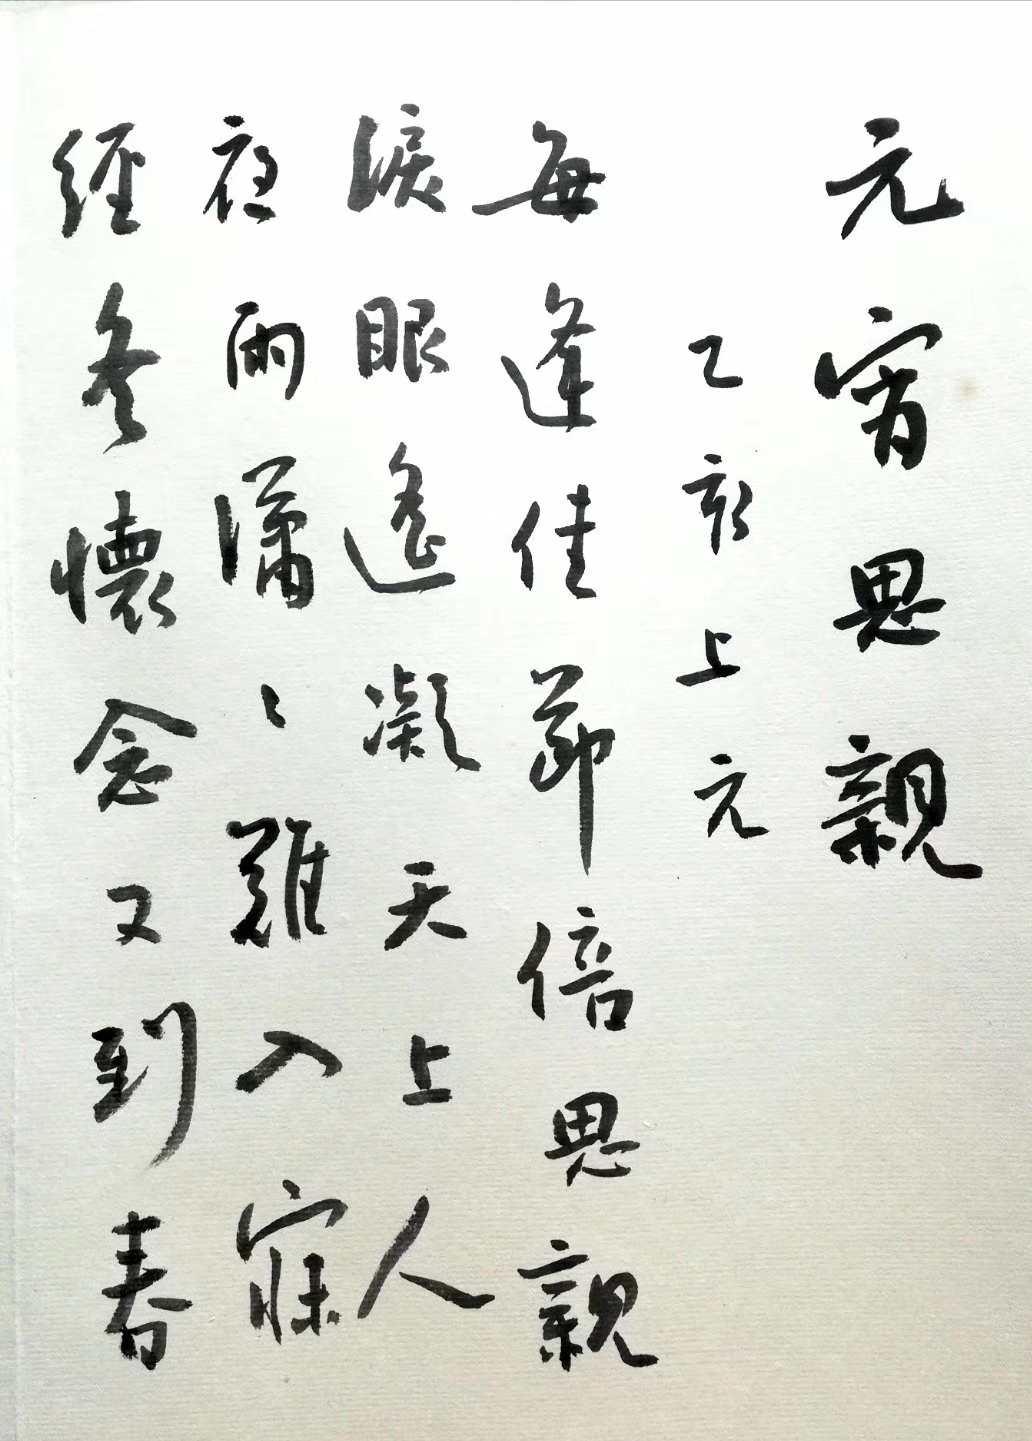 元宵思親
乙亥上元
每逢佳節倍思親
淚眼遙凝天上人
夜雨瀟〻難入寐
經冬懷念又到春